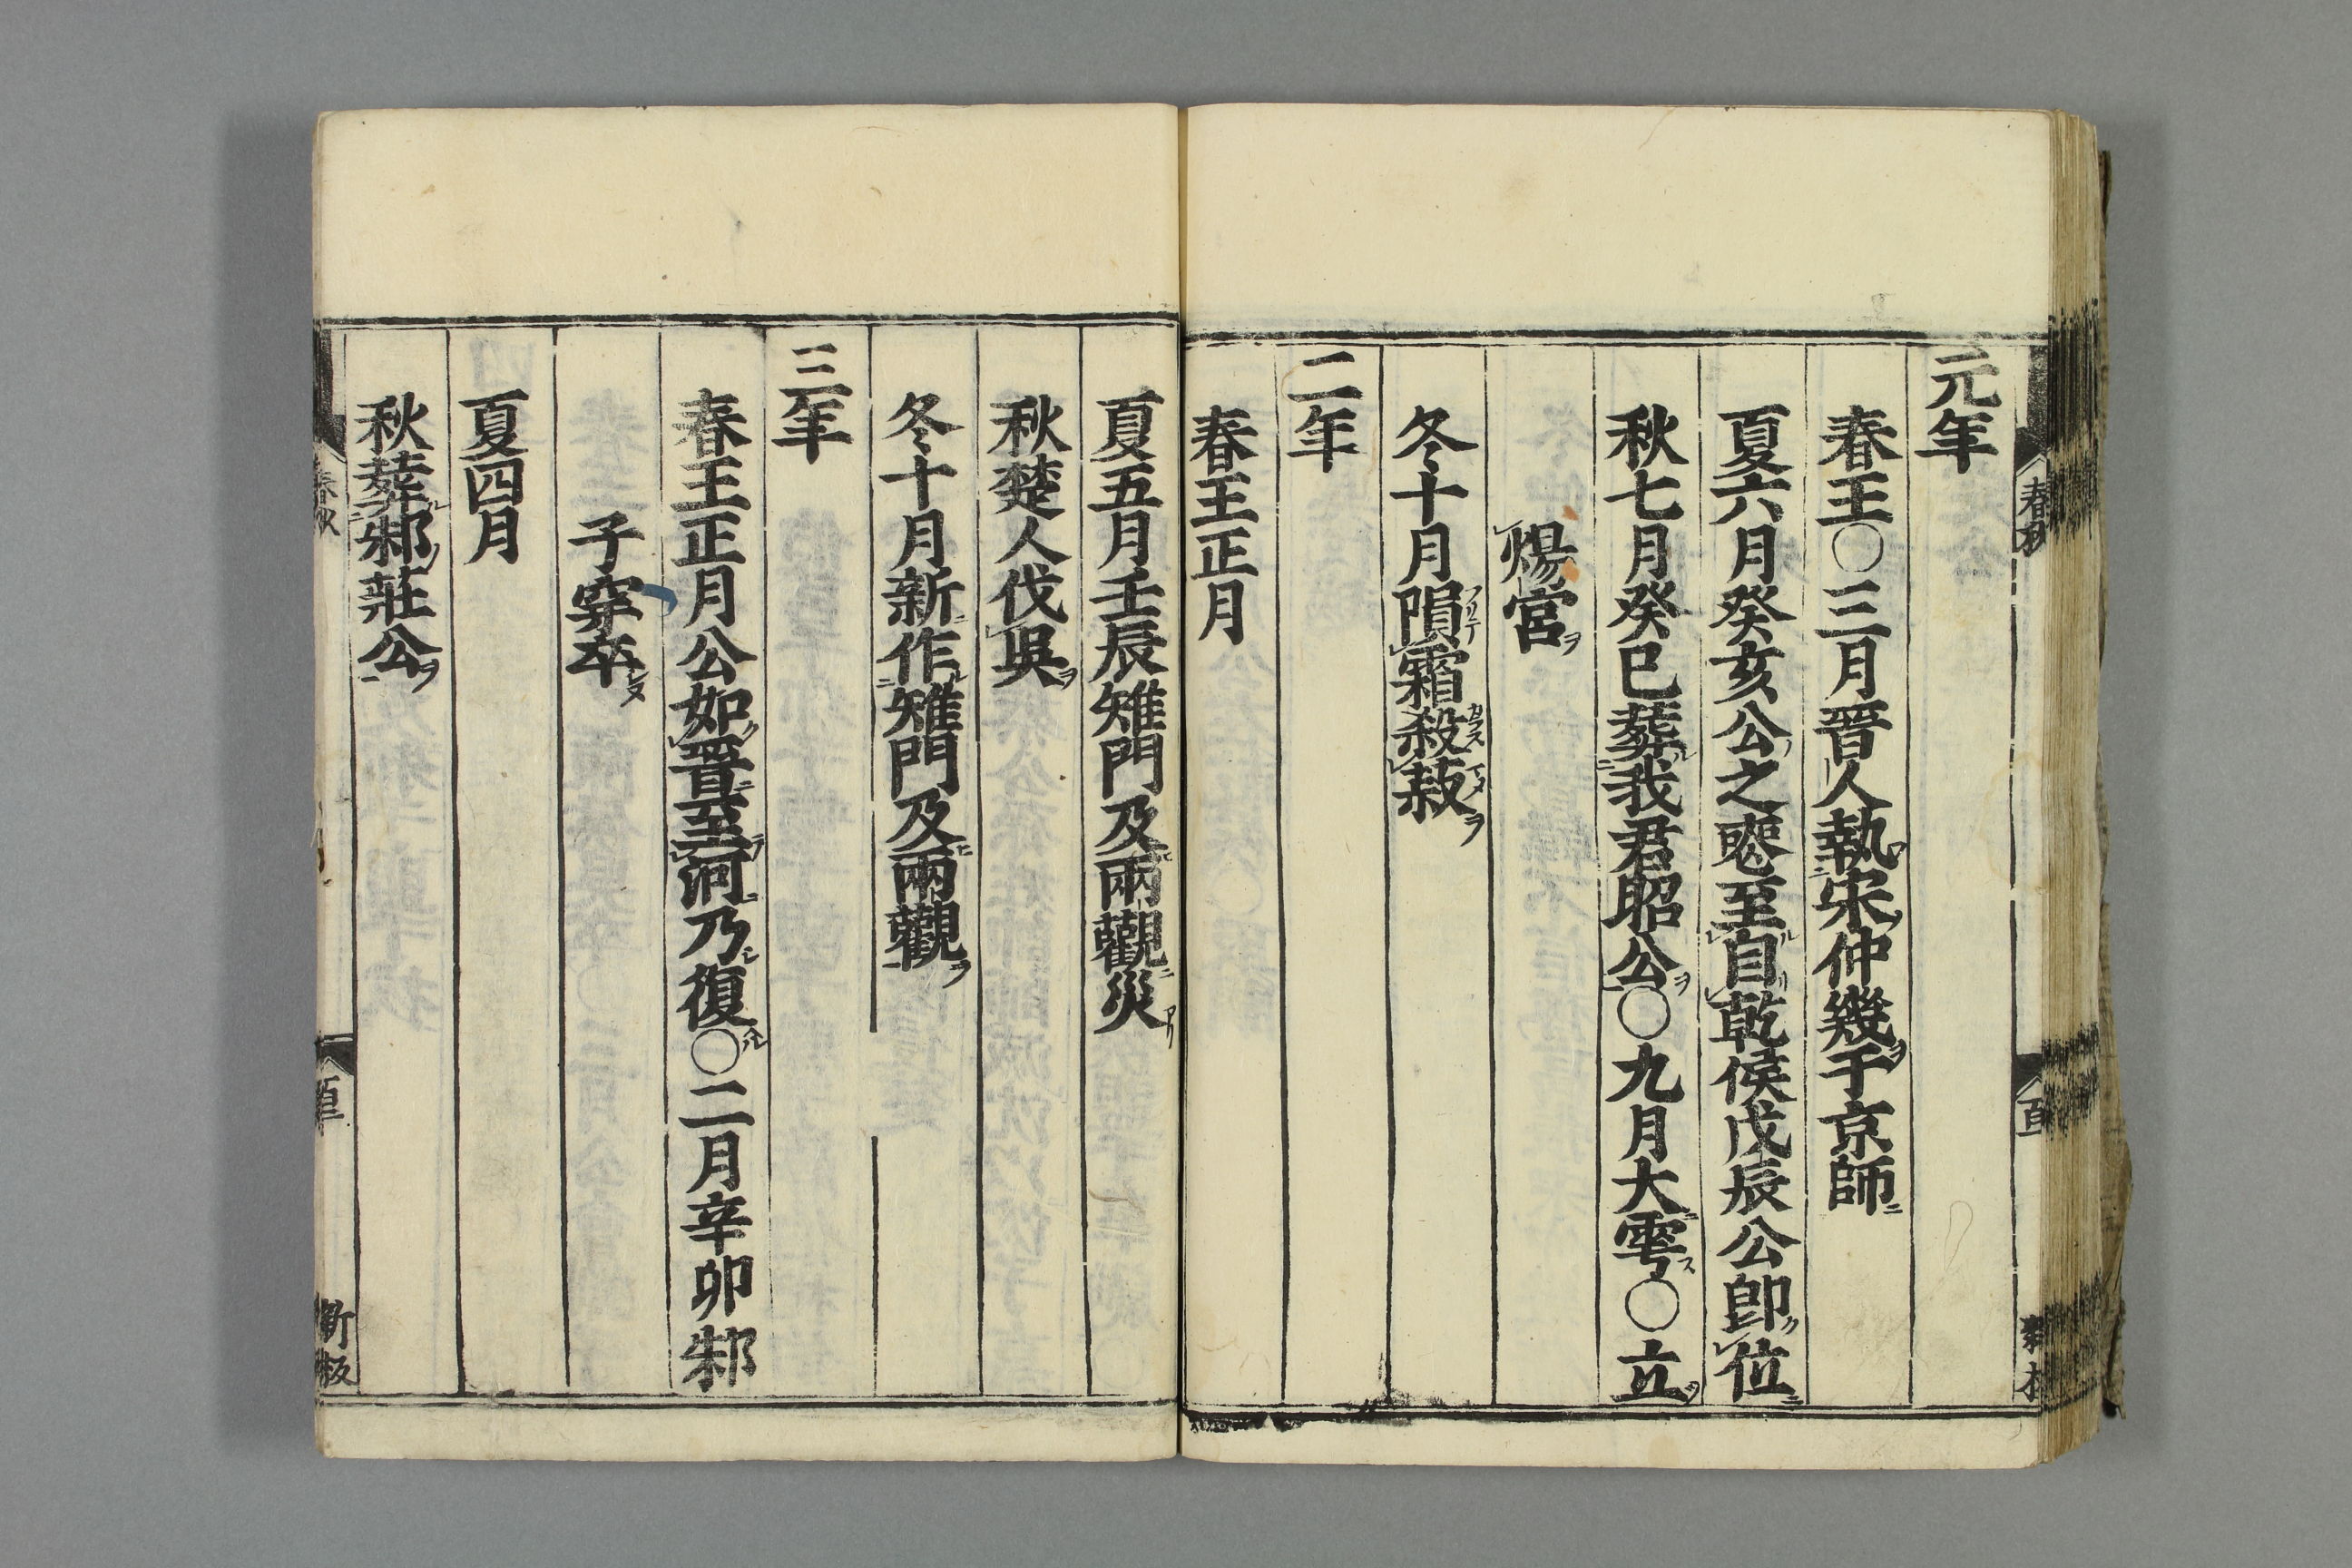 元年
春王〇三月晉人執宋仲幾于京師
夏六月癸亥公之喪至自乾侯戊辰公即位
秋七月癸巳葬我君昭公〇九月大雩〇立
煬宮
冬十月隕霜殺菽
二年
春王正月
夏五月壬辰雉門及兩觀災
秋楚人伐吳
冬十月新作雉門及兩觀
三年
春王正月公如晉至河乃復〇二月辛卯邾
子穿卒
夏四月
秋葬邾莊公
春秋
新板